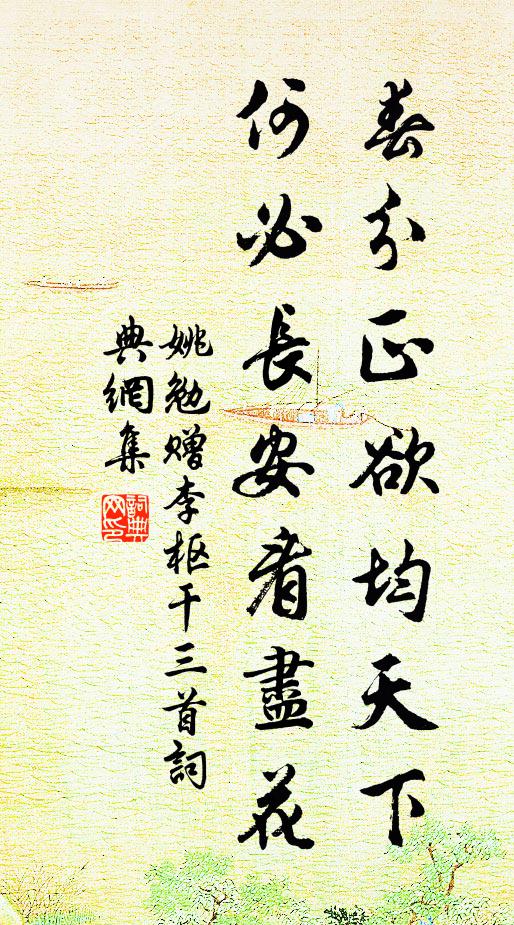 春分正欲均天下
何必長安看盡花
姚勉赠李枢干三首詞
典網集
詞典网印